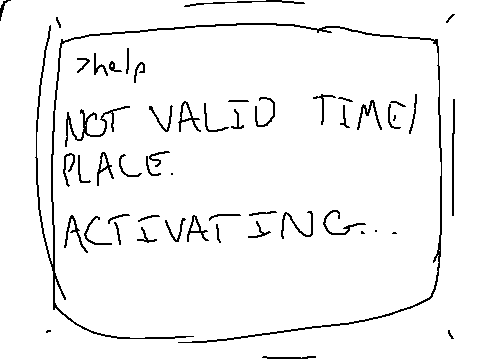 >help
NOT VALID TIME/
PLACE.
ACTIVATING...